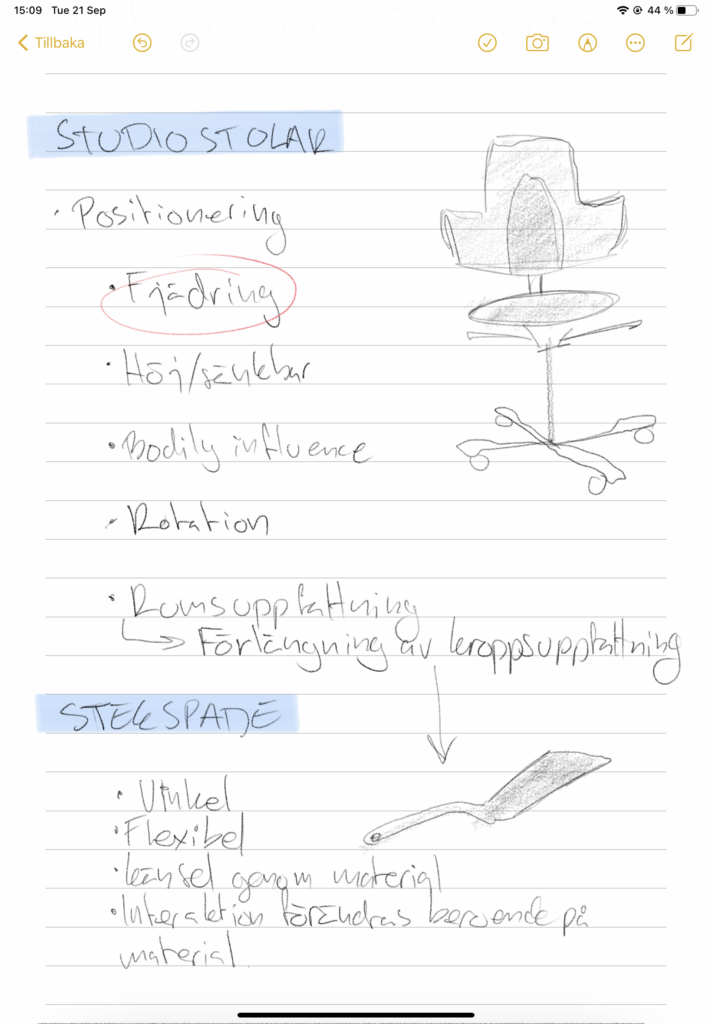 15:09 Tue 21 Sep 44 %
Tillbaka
STUDIOSTOLAR
• Positionering
• Fjädring
• Höj/sänkbar
• Bodily influence
• Rotation
• Rumsuppfattning
Förlängning av kroppsuppfattning
STEKSPADE
• Vinkel
• Flexibel
• känsel genom material
• Interaktion förändras beroende på
material.